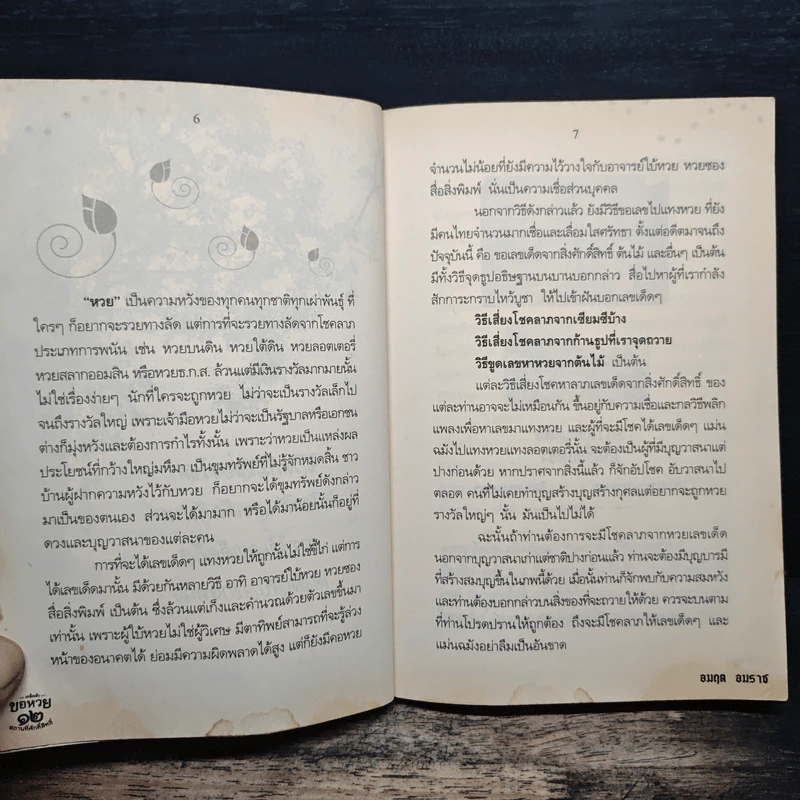 6
"หวย" เป็นความหวังของทุกคนทุกชาติทุกเผ่าพันธุ์ ที่
ใครๆ ก็อยากจะรวยทางลัด แต่การที่จะรวยทางลัดจากโชคลาภ
ประเภทการพนัน เช่น หวยบนดิน หวยใต้ดิน หวยลอตเตอรี่
หวยสลากออมสิน หรือหวยธ.ก.ส. ล้วนแต่มีเงินรางวัลมากมายนั้น
ไม่ใช่เรื่องง่ายๆ นักที่ใครจะถูกหวย ไม่ว่าจะเป็นรางวัลเล็กไป
จนถึงรางวัลใหญ่ เพราะเจ้ามือหวยไม่ว่าจะเป็นรัฐบาลหรือเอกชน
ต่างก็มุ่งหวังและต้องการกำไรทั้งนั้น เพราะว่าหวยเป็นแหล่งผล
ประโยชน์ที่กว้างใหญ่มหึมา เป็นขุมทรัพย์ที่ไม่รู้จักหมดสิ้น ชาว
บ้านผู้ฝากความหวังไว้กับหวย ก็อยากจะได้ขุมทรัพย์ดังกล่าว
มาเป็นของตนเอง ส่วนจะได้มามาก หรือได้มาน้อยนั้นก็อยู่ที่
ดวงและบุญวาสนาของแต่ละคน
การที่จะได้เลขเด็ดๆ แทงหวยให้ถูกนั้นไม่ใช่ขี้ไก่ แต่การ
ได้เลขเด็ดมานั้น มีด้วยกันหลายวิธี อาทิ อาจารย์ใบ้หวย หวยซอง
สื่อสิ่งพิมพ์ เป็นต้น ซึ่งล้วนแต่เก็งและคำนวณด้วยตัวเลขขึ้นมา
เท่านั้น เพราะผู้ใบ้หวยไม่ใช่ผู้วิเศษ มีตาทิพย์สามารถที่จะรู้ล่วง
หน้าของอนาคตได้ ย่อมมีความผิดพลาดได้สูง แต่ก็ยังมีคอหวย
ขอหวย
๑๒
สถานที่ศักดิ์สิทธิ์
7
จำนวนไม่น้อยที่ยังมีความไว้วางใจกับอาจารย์ใบ้หวย หวยซอง
สื่อสิ่งพิมพ์ นั่นเป็นความเชื่อส่วนบุคคล
นอกจากวิธีดังกล่าวแล้ว ยังมีวิธีขอเลขไปแทงหวย ที่ยัง
มีคนไทยจำนวนมากเชื่อและเลื่อมใสศรัทธา ตั้งแต่อดีตมาจนถึง
ปัจจุบันนี้ คือ ขอเลขเด็ดจากสิ่งศักดิ์สิทธิ์ ต้นไม้ และอื่นๆ เป็นต้น
มีทั้งวิธีจุดธูปอธิษฐานบนบานบอกกล่าว สื่อไปหาผู้ที่เรากำลัง
สักการะกราบไหว้บูชา ให้ไปเข้าฝันบอกเลขเด็ดๆ
วิธีเสี่ยงโชคลาภจากเซียมซีบ้าง
วิธีเสี่ยงโชคลาภจากก้านธูปที่เราจุดถวาย
วิธีขูดเลขหาหวยจากต้นไม้ เป็นต้น
แต่ละวิธีเสี่ยงโชคหาลาภเลขเด็ดจากสิ่งศักดิ์สิทธิ์ ของ
แต่ละท่านอาจจะไม่เหมือนกัน ขึ้นอยู่กับความเชื่อและกลวิธีพลิก
แพลงเพื่อหาเลขมาแทงหวย และผู้ที่จะมีโชคได้เลขเด็ดๆ แม่น
ฉมังไปแทงหวยแทงลอตเตอรี่นั้น จะต้องเป็นผู้ที่มีบุญวาสนาแต่
ปางก่อนด้วย หากปราศจากสิ่งนี้แล้ว ก็จักอัปโชค อับวาสนาไป
ตลอด คนที่ไม่เคยทำบุญสร้างบุญสร้างกุศลแต่อยากจะถูกหวย
รางวัลใหญ่ๆ นั้น มันเป็นไปไม่ได้
ฉะนั้นถ้าท่านต้องการจะมีโชคลาภจากหวยเลขเด็ด
นอกจากบุญวาสนาเก่าแต่ชาติปางก่อนแล้ว ท่านจะต้องมีบุญบารมี
ที่สร้างสมบุญขึ้นในภพนี้ด้วย เมื่อนั้นท่านก็จักพบกับความสมหวัง
และท่านต้องบอกกล่าวบนสิ่งของที่จะถวายให้ด้วย ควรจะบนตาม
ที่ท่านโปรดปรานให้ถูกต้อง ถึงจะมีโชคลาภให้เลขเด็ดๆ และ
แม่นฉมังอย่าลืมเป็นอันขาด
อมฤต อมราช